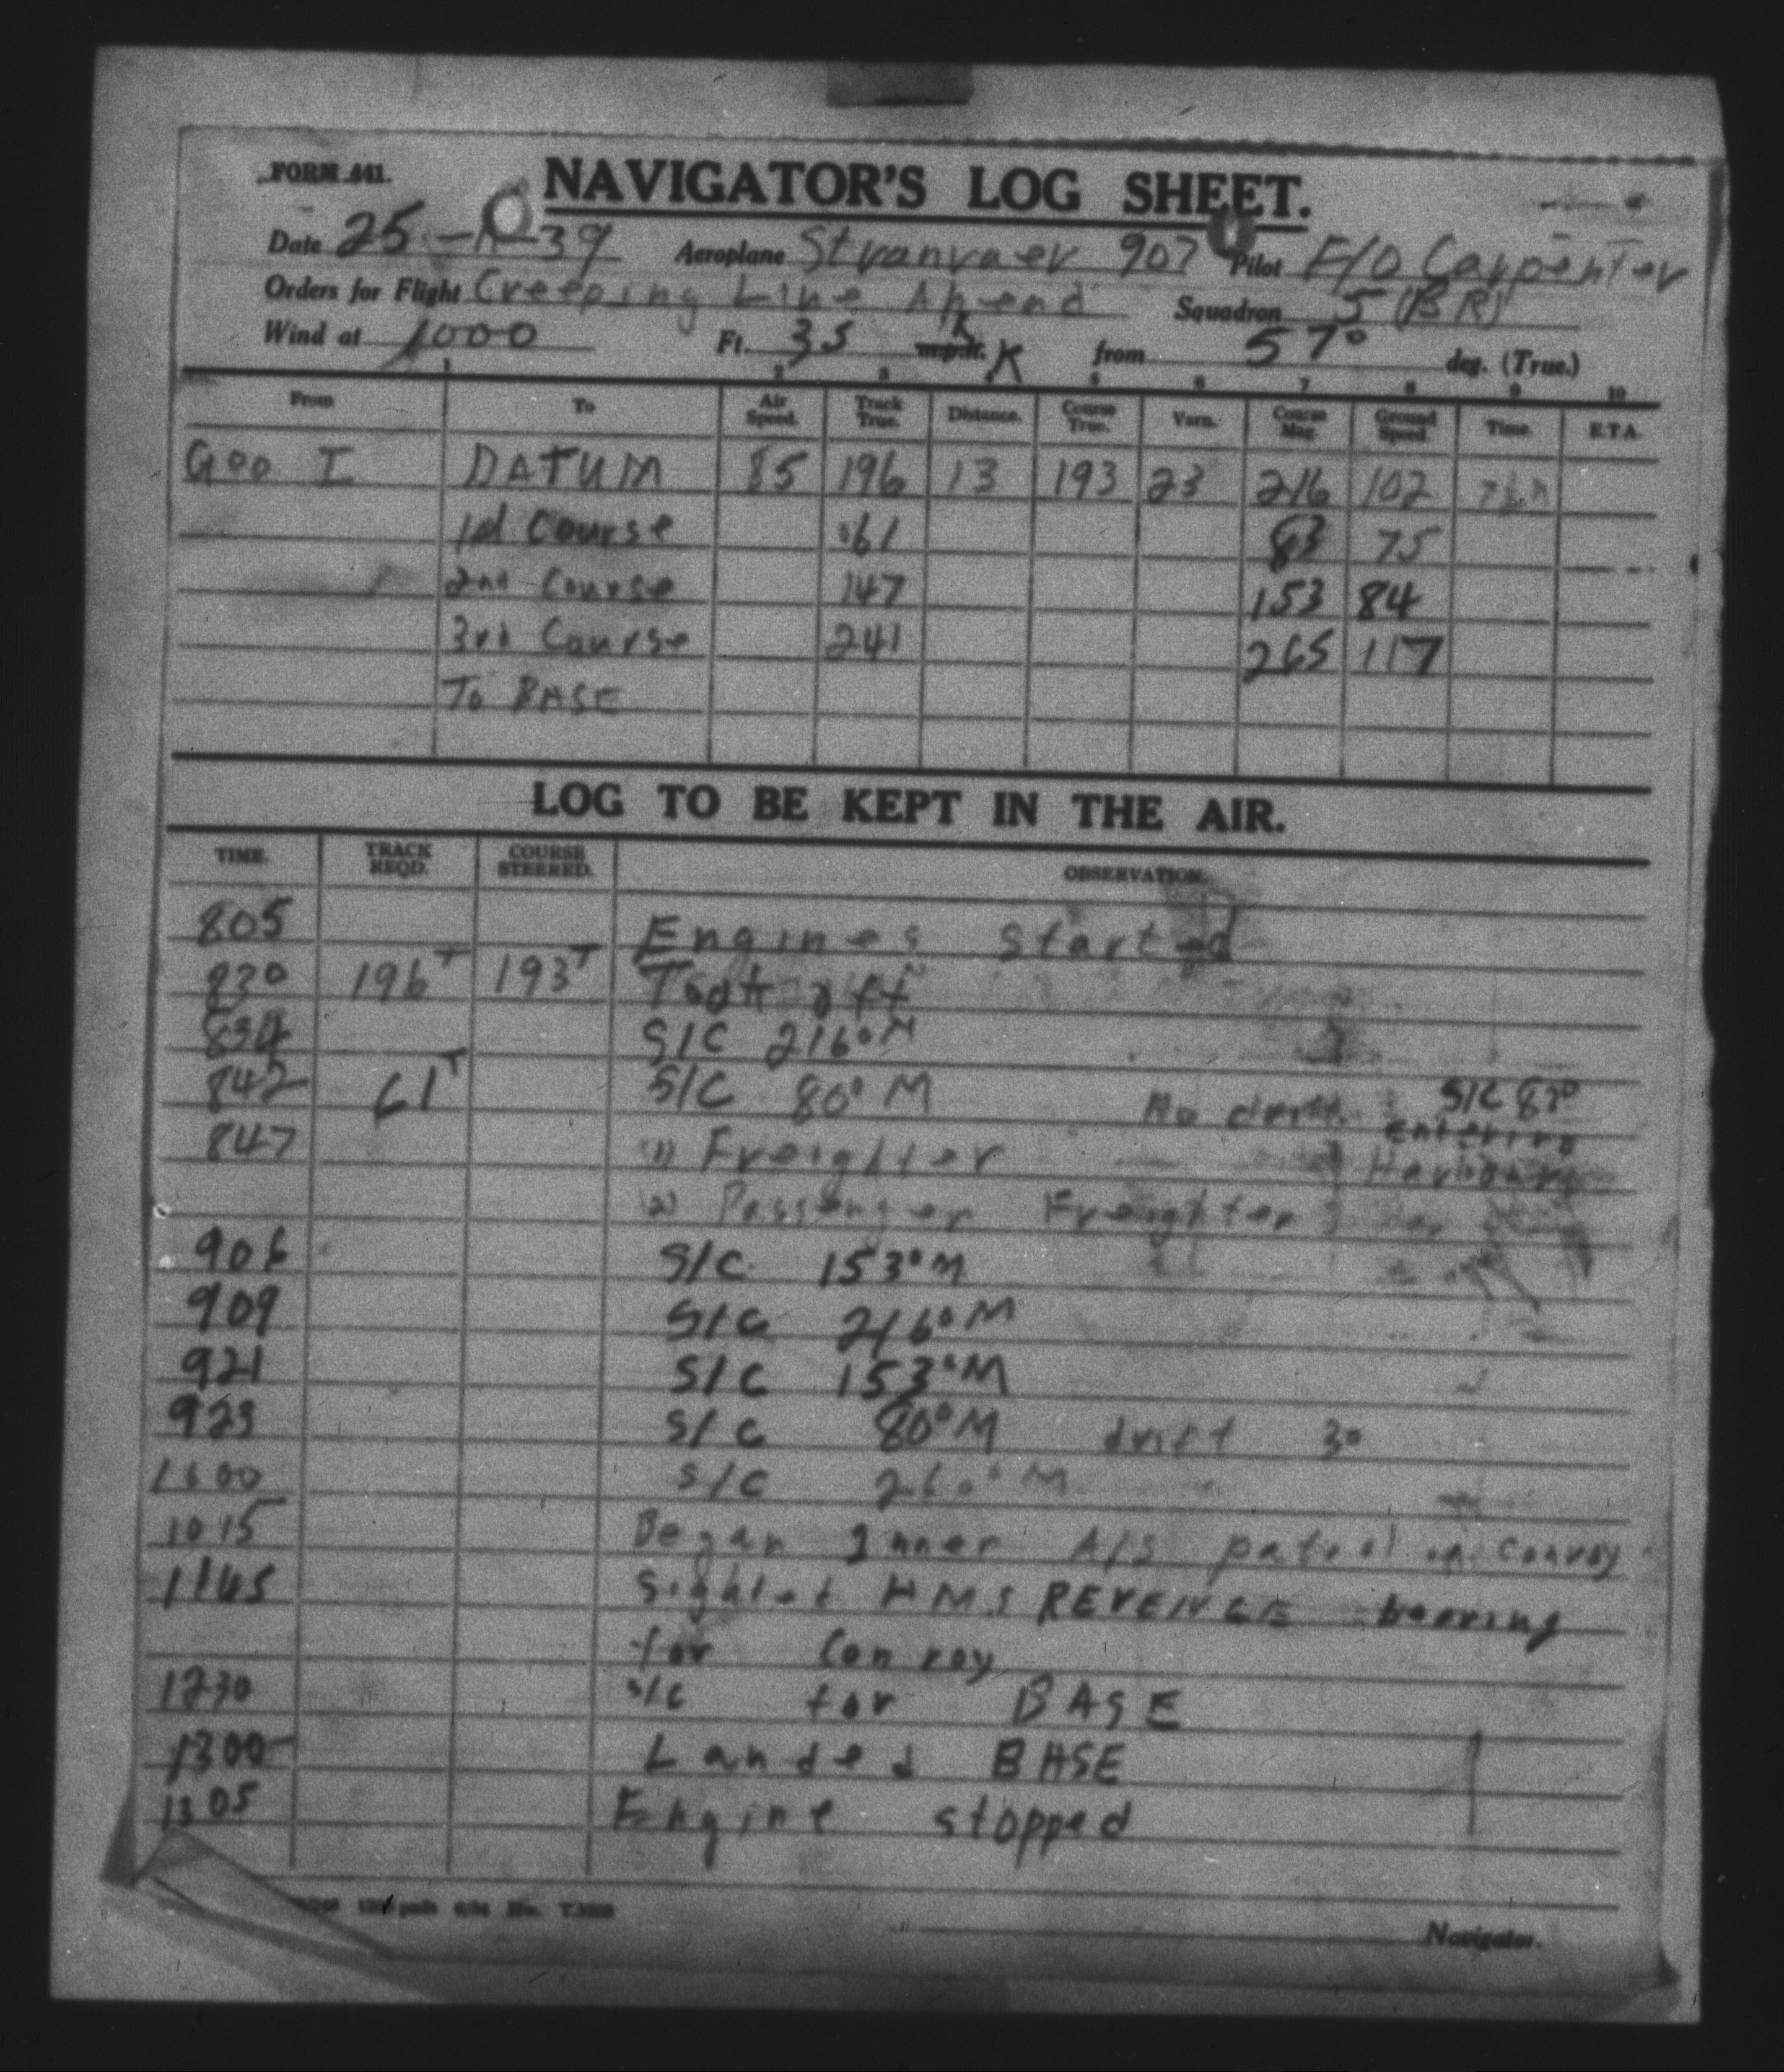 FORM 441.
NAVIGATOR'S LOG SHEET.
Date 25-11-39 Aeroplane Stranraer 907 Pilot F/O Carpenter
Orders for Flight Creeping Line Ahead Squadron 5 (BR)
Wind at 1000 Ft. 35 m.p.h. K from 57° deg. (True.)
1 2 3 4 5 6 7 8 9 10
From To Air Speed. Track True. Distance. Course True. Varn. Course Mag Ground Speed. Time. E.T.A.
Geo I DATUM 85 196 13 193 23 216 102
1st Course 061 83 75
2nd Course 147 153 84
3rd Course 241 265 117
To BASE
LOG TO BE KEPT IN THE AIR.
TIME. TRACK REQD. COURSE STEERED. OBSERVATION.
805 Engines Started
830 196T 193T Took off
834 S/C 216°M
842 61T S/C 80°M No drift S/C 83°
847 (1) Freighter entering Harbour
(2) Passenger Freighter
906 S/C 153°M
909 S/C 216°M
921 S/C 153°M
923 S/C 80°M drift 3°
1000 S/C 260°M
1015 Began Inner A/S patrol on Convoy
1145 Sighted HMS REVENGE bearing
for Convoy
1230 S/C for BASE
1300 Landed BASE
1305 Engine stopped
Navigator.